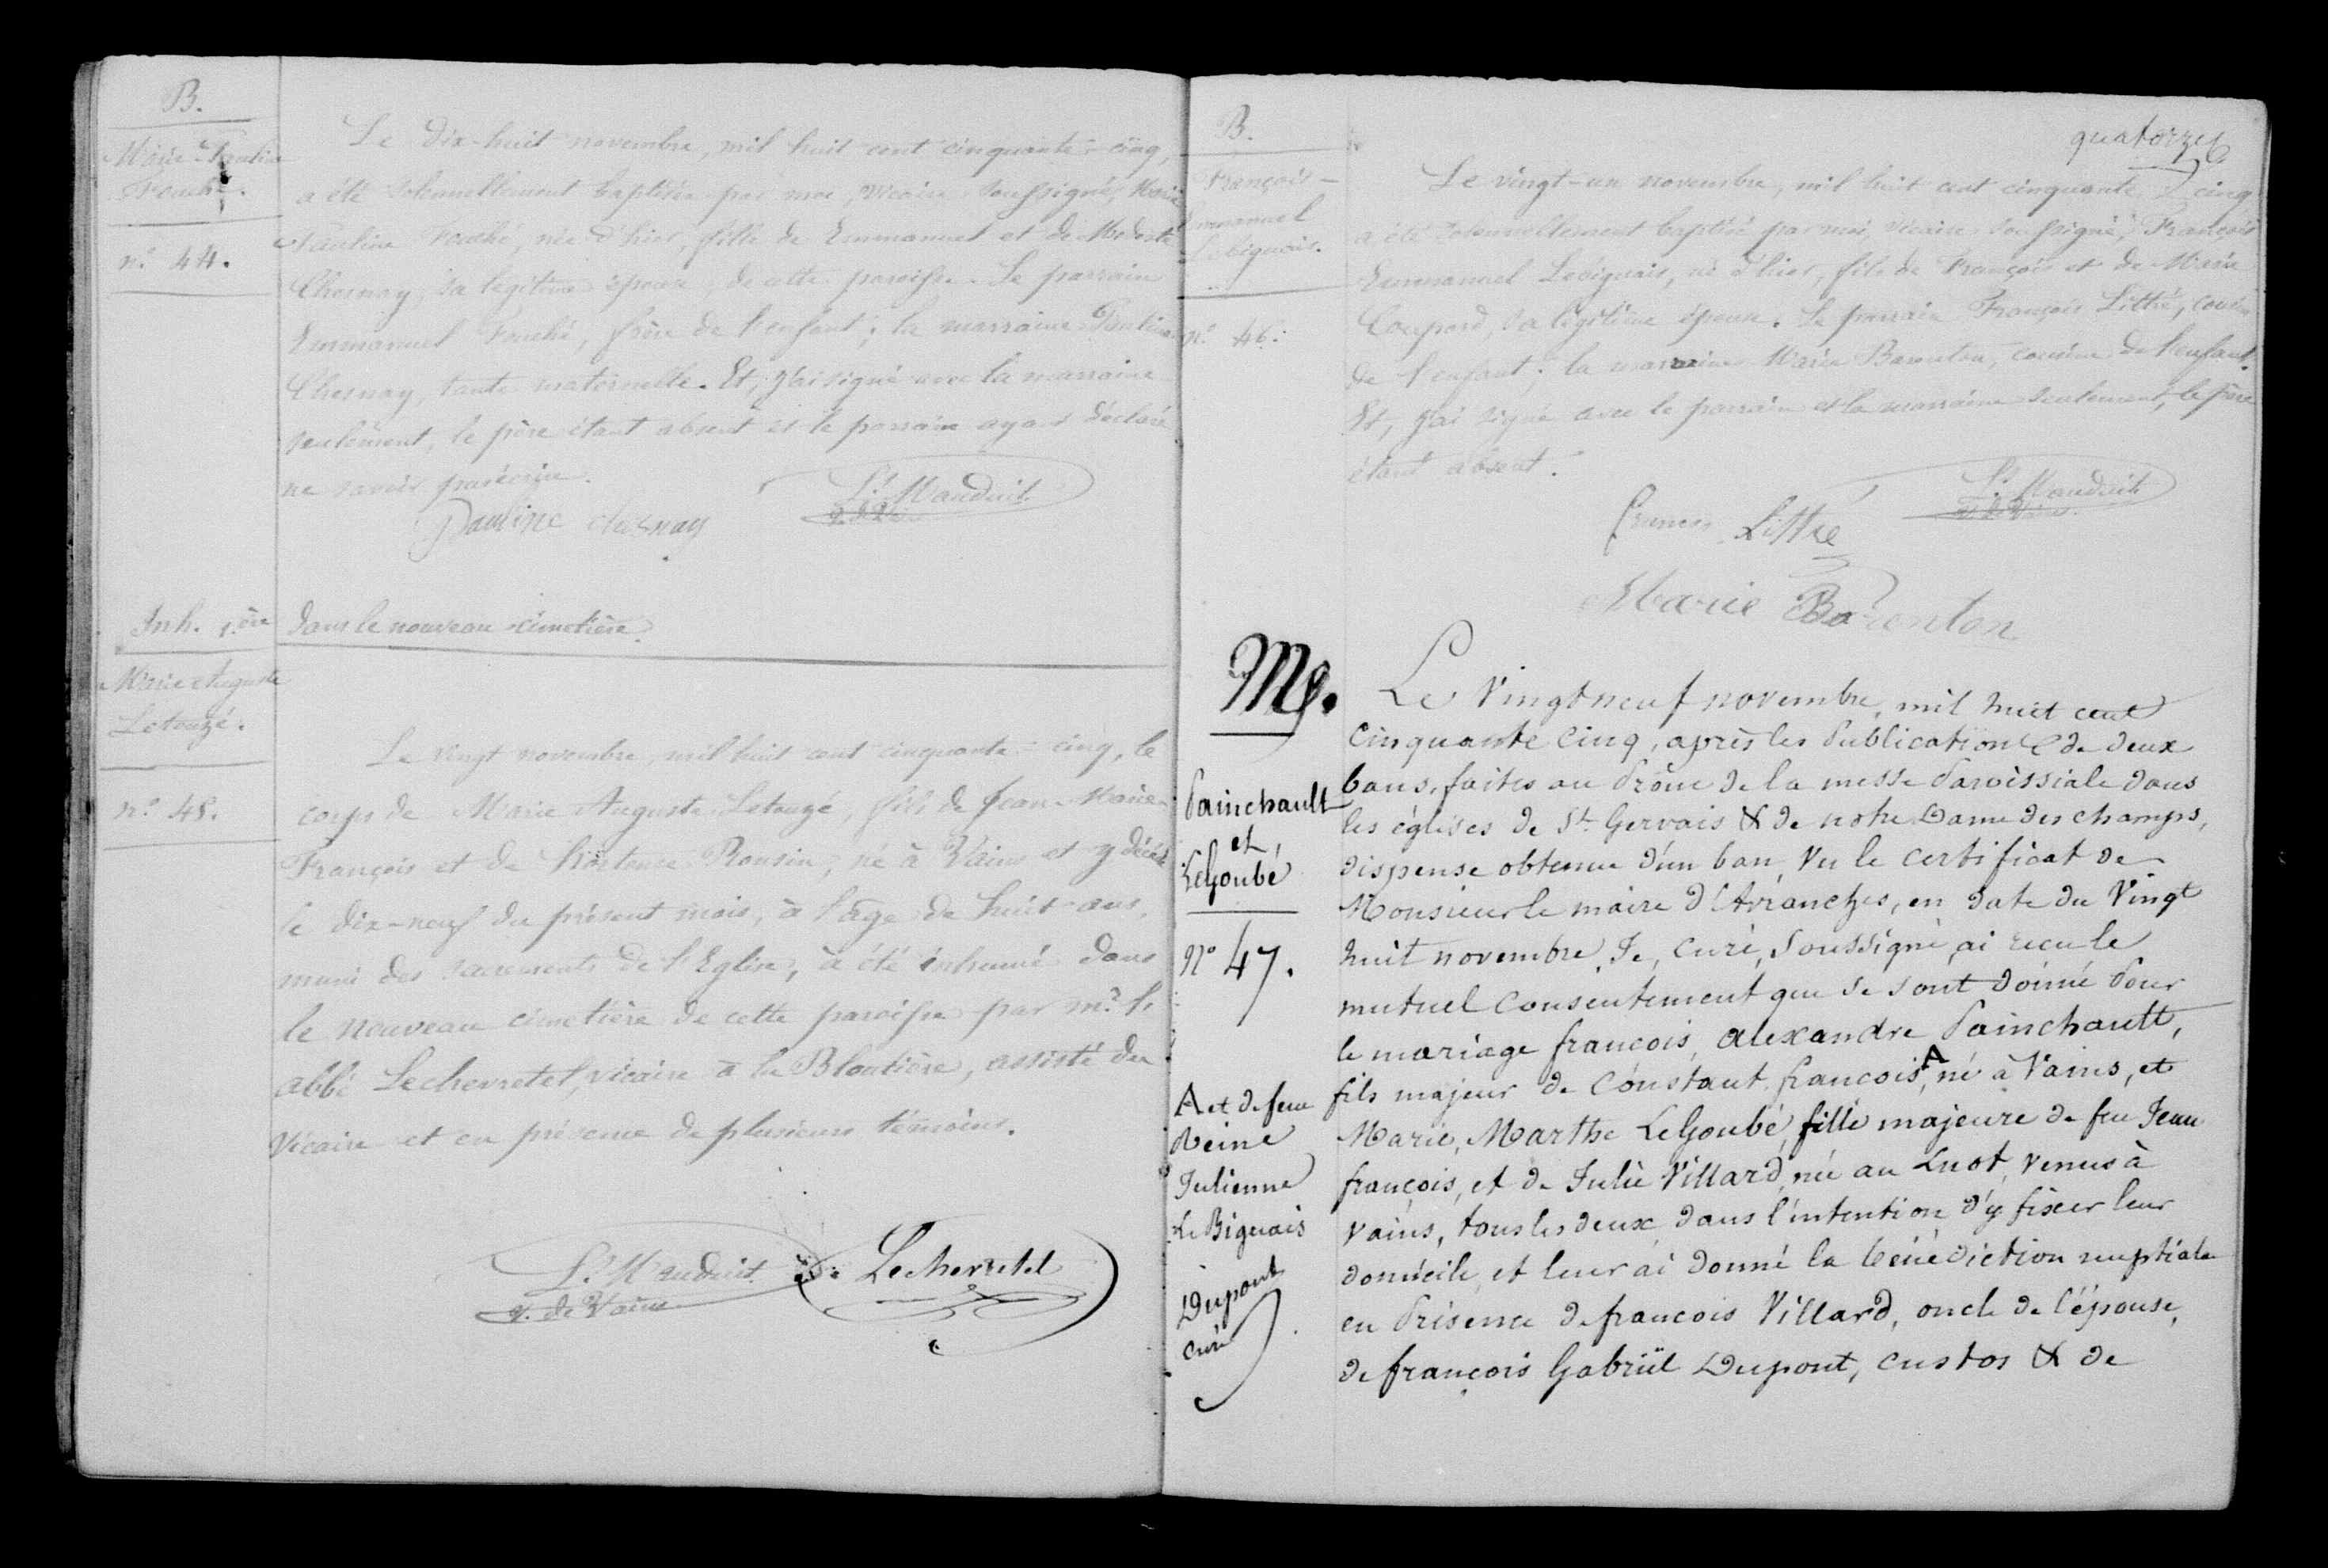 B.
Marie Pauline
Fouché.
nº 44.
Le dix-huit novembre, mil huit cent cinquante-cinq,
a été solennellement baptisée par moi, vicaire soussigné, Marie
Pauline Fouché, née d'hier, fille de Emmanuel et de Modeste
Chesnay, sa légitime épouse, de cette paroisse. Le parrain
Emmanuel Fouché, frère de l'enfant; la marraine Pauline
Chesnay, tante maternelle. Et, j'ai signé avec la marraine
seulement, le père étant absent et le parrain ayant déclaré
ne savoir pas écrire.
Pauline chesnay
L. Mauduit
v. de Vains
Inh. 1.ère
dans le nouveau cimetière.
Marie Auguste
Letouzé.
nº 45.
Le vingt novembre, mil huit cent cinquante-cinq, le
corps de Marie Auguste Letouzé, fils de Jean-Marie
François et de Hortense Rousin, né à Vains et y décédé
le dix-neuf du présent mois, à l'âge de huit ans,
muni des sacrements de l'Eglise, a été inhumé dans
le nouveau cimetière de cette paroisse par mr. l'
abbé Lechevretel, vicaire à la Bloutière, assisté du
Vicaire et en présence de plusieurs témoins.
L. Mauduit
v. de Vains
Lechevretel
quatorze
B.
François-
Emmanuel
Lebiguais.
nº 46.
Le vingt-un novembre, mil huit cent cinquante cinq
a été solennellement baptisé par moi, vicaire soussigné, François
Emmanuel Lebiguais, né d'hier, fils de François et de Marie
Coupard, sa légitime épouse. Le parrain François Littré, cousin
de l'enfant; la marraine Marie Barenton, cousine de l'enfant.
Et, j'ai signé avec le parrain et la marraine seulement, le père
étant absent.
L. Mauduit
v. de Vains
francois Littré
Marie Barenton
Me.
Painchault
et
LeGoubé
Nº 47.
Le Vingt neuf novembre, mil huit cent
cinquante cinq, après les Publication de deux
bans, faites au Prône de la messe Paroissiale dans
les églises de St. Gervais & de notre Dame des champs,
dispense obtenue d'un ban, Vu le certificat de
Monsieur le maire d'Avranches, en date du Vingt
huit novembre, Je, curé, soussigné, ai reçu le
mutuel consentement que se sont donné Pour
le mariage françois, alexandre Painchault,
fils majeur de Constant françois, A né à Vains, et
Marie, Marthe LeGoubé, fille majeure de feu Jean
françois, et de Julie Villard, née au Luot, venus à
Vains, tous les deux, dans l'intention d'y fixer leur
domicile, et leur ai donné la bénédiction nuptiale
en Présence de françois Villard, oncle de l'épouse,
de françois Gabriel Dupont, custos & de
A et de feue
Reine
Julienne
Le Biguais
Dupont
curé